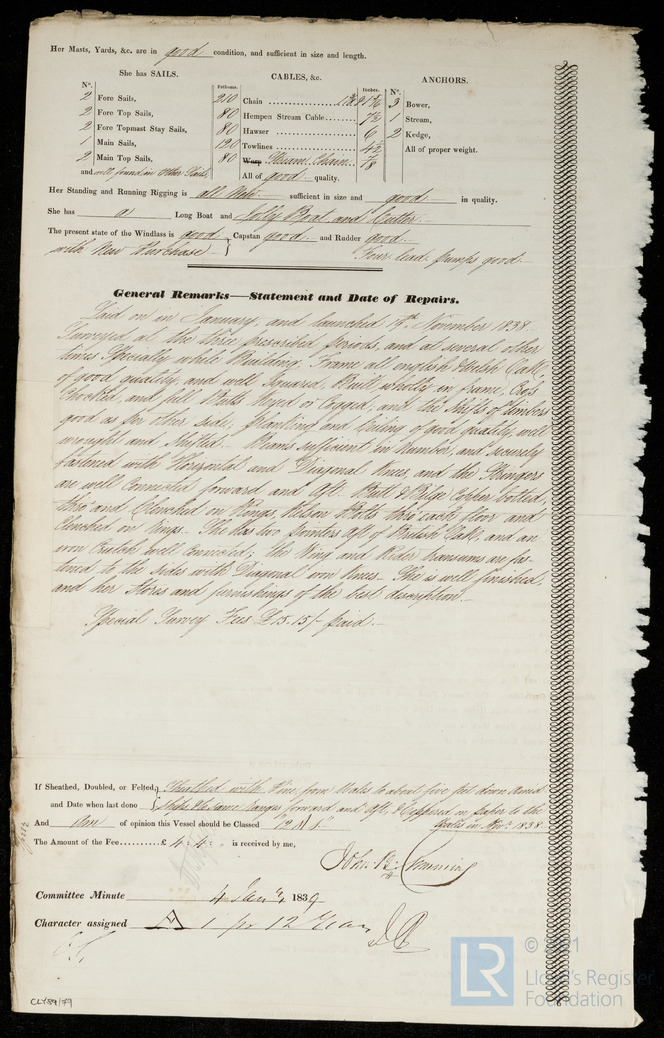 Her Masts, Yards, &c. are in good condition, and sufficient in size and length.
She has SAILS. CABLES, &c. ANCHORS.
N°. Fathoms. Inches. N°.
2 Fore Sails, 210 Chain 3 Bower,
2 Fore Top Sails, 80 Hempen Stream Cable 7½ 1 Stream,
2 Fore Topmast Stay Sails, 80 Hawser 6 2 Kedge,
1 Main Sails, 120 Towlines 4½ All of proper weight.
2 Main Top Sails, 80 Warp Stream Chain 7/8
and well found in other Sails All of good quality.
Her Standing and Running Rigging is all New sufficient in size and good in quality.
She has a Long Boat and Jolly Boat and Cutter
The present state of the Windlass is good Capstan good and Rudder good
with New Purchase Four lead pumps good
General Remarks—Statement and Date of Repairs.
Laid on in January, and launched 19th November 1838
Surveyed at the three prescribed periods, and at several other
times Specially while Building, Frame all english & Welsh Oak,
of good quality, and well Squared, Built wholly in frame, Cross
Chocked, and full Butts and the Shifts of timbers
good as per other side; planking and Ceiling of good quality, well
wrought and Shifted. Beams sufficient in Number, and securely
fastened with Horizontal and Diagonal Knees, and the Stringers
are well Connected forward and Aft. Butt & Bilge Copper bolted
thro and Clenched on Rings, Kelson Bolts thro each floor and
Clenched on Rings. She has two pointers Aft of British Oak, and an
iron Crutch well Connected; the Wing and Rider transums are fas-
tened to the sides with Diagonal iron Knees. She is well finished,
and her Stores and furnishings of the best description.
Special Survey Fees £15.15/- paid.
If Sheathed, Doubled, or Felted, Sheathed with Pine from Wales to about five feet down Amid
and Date when last done ships, the same ranges forward and Aft, & Coppered on paper to the
Wales in Nov. 1838
And am of opinion this Vessel should be Classed "12 A 1"
The Amount of the Fee £ 4.4 is received by me,
John B. Cumming
Committee Minute 4 Jany. 1839
Character assigned A 1 for 12 Years
CLY89/79
© 2021
LR
Lloyd's Register
Foundation